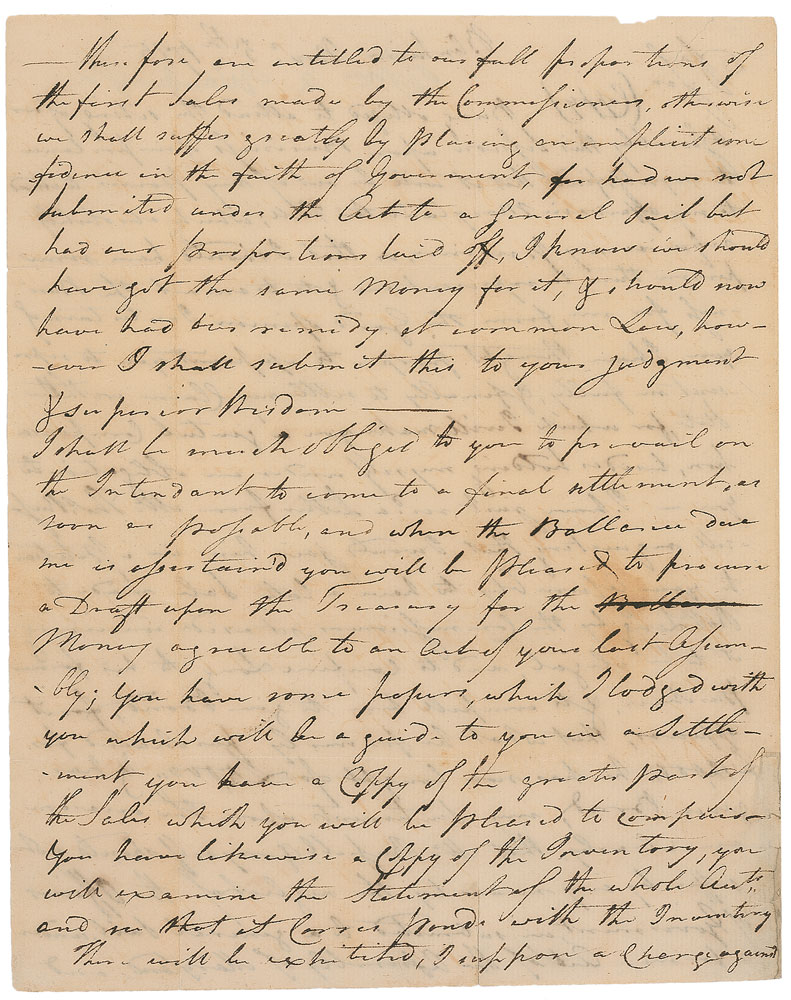 — therefore are entitled to our full proportions of
the first Sales made by the Commissioners, otherwise
we shall suffer greatly by placing an implicit con-
fidence in the faith of Goverment, for had we not
submitted under the Act to a General Sail but
had our proportions laid off, I know we should
have got the same Money for it, & should now
have had our remidy at common Law, how-
-ever I shall submit this to your Judgment
& superior Wisdom —
I shall be much obliged to you to prevail on
the Intendant to come to a final settlement, as
soon as possable, and when the Ballance due
me is assertain'd you will be pleased to procure
a Draft upon the Treasury for the Ballance
Money agreable to an Act of your last Assem-
-bly; you have some papers, which I lodged with
you which will be a guide to you in a Settle-
-ment, you have a Coppy of the greater part of
the Sales which you will be pleased to compair—
You have likewise a Coppy of the Inventory, you
will examine the Statement of the whole Accts.
and see that it Corresponds with the Inventory
There will be exhibited, I suppose a Charge against